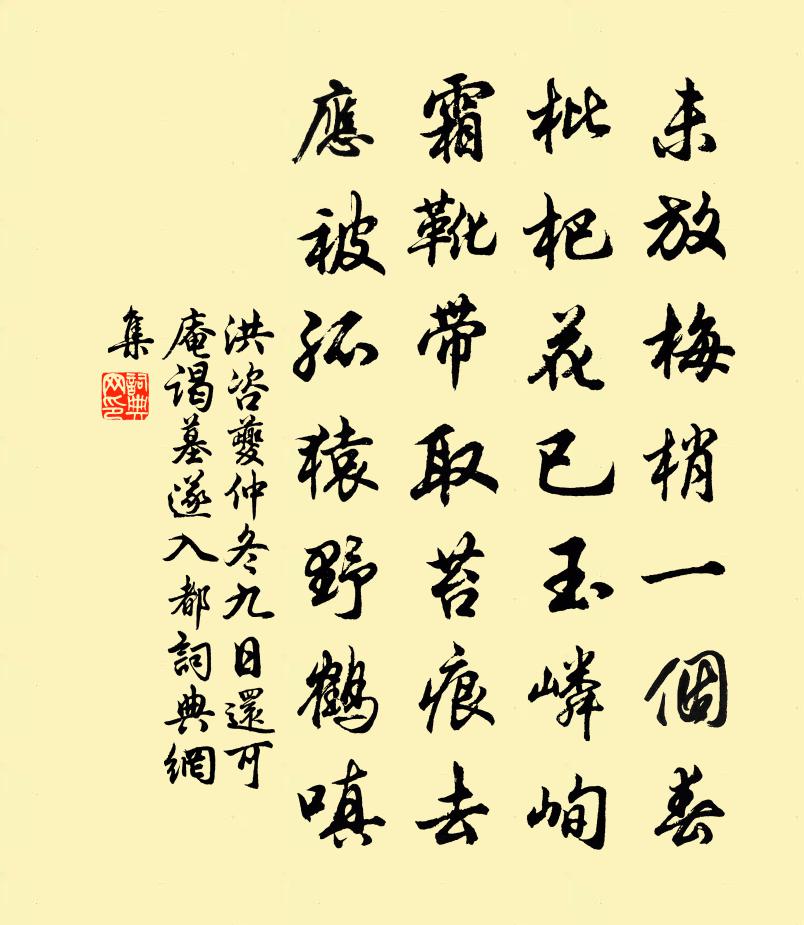 未放梅梢一個春
枇杷花已玉嶙峋
霜靴帶取苔痕去
應被孤猿野鶴嗔
洪咨夔仲冬九日還可
庵謁墓遂入都詞典網
集
詞典
网印